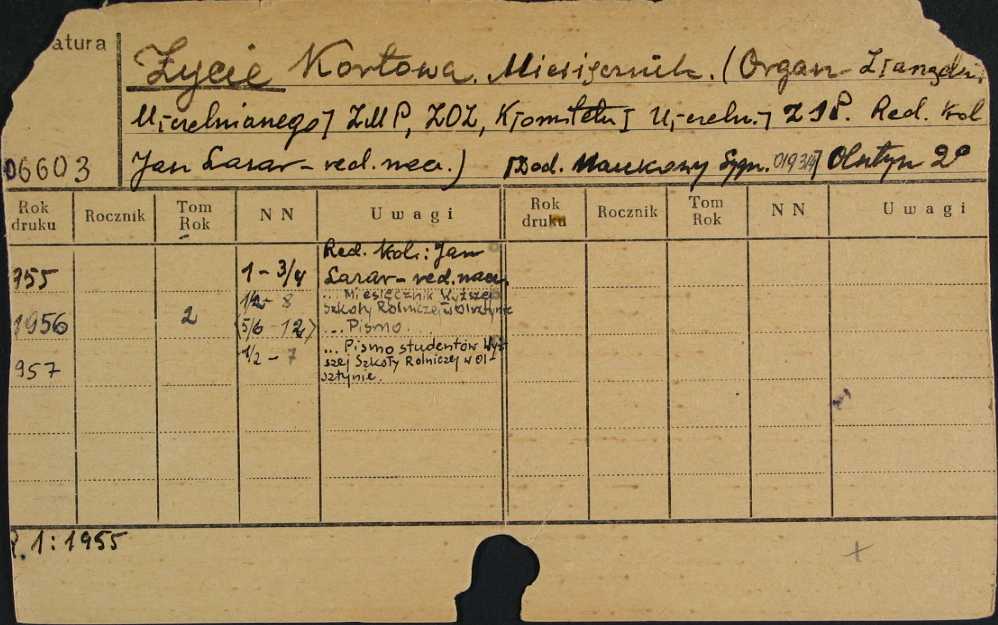 atura
Życie Kortowa. Miesięcznik. (Organ Z[arządu]
U[czelnianego] ZMP, ZOZ, K[omitetu] U[czeln.] ZSP. Red. Kol
06603
Jan Łazar - red. nacz.) [Dod. Naukowy Sygn. 01934] Olsztyn 2°
Rok druku Rocznik Tom Rok N N Uwagi Rok druku Rocznik Tom Rok N N Uwagi
Red. Kol.: Jan
955 1-3/4 Łazar - red. nacz.
1/2- 8 ... Miesięcznik Wyższej
Szkoły Rolniczej w Olsztynie
1956 2 (5/6 -12) ... Pismo.
1/2 - 7 ... Pismo studentów Wyż-
szej Szkoły Rolniczej w Ol-
957 sztynie.
R. 1: 1955
+